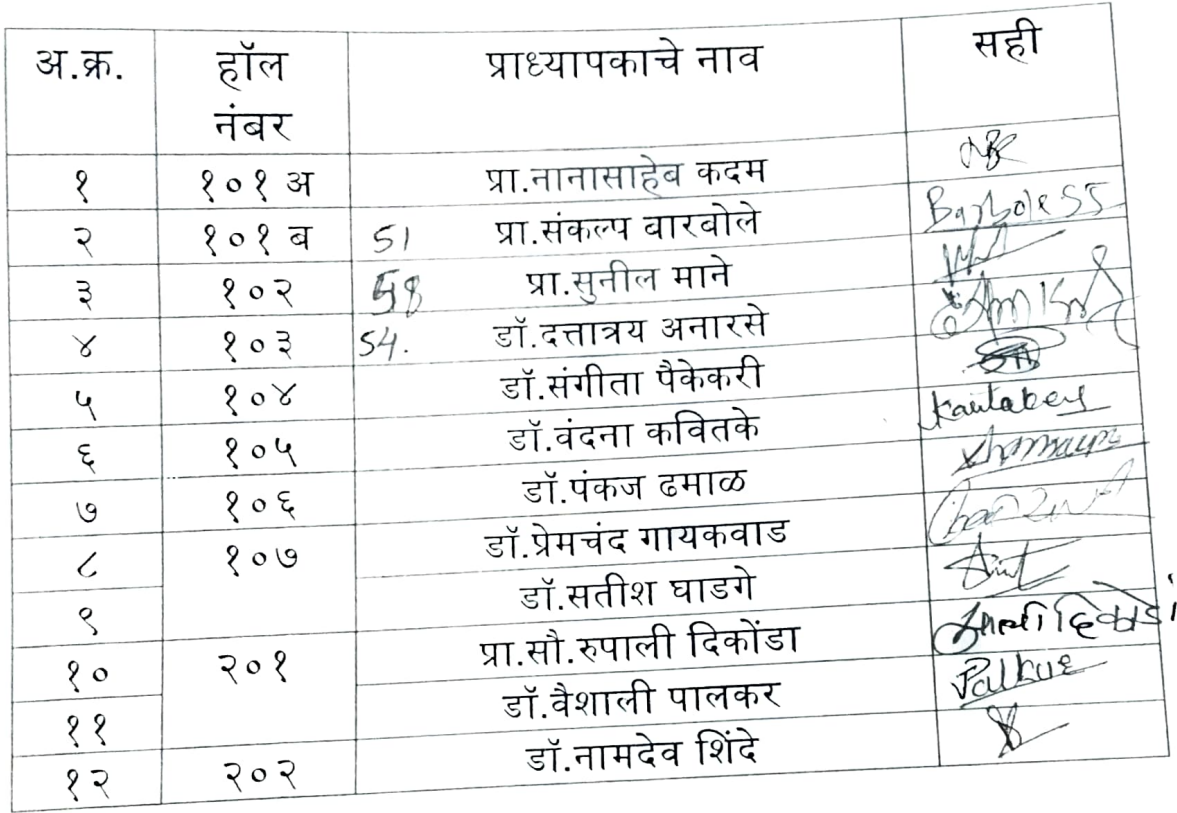 अ.क्र. हॉल नंबर प्राध्यापकाचे नाव सही
१ १०१ अ प्रा.नानासाहेब कदम
२ १०१ ब 51 प्रा.संकल्प बारबोले Barbole SS
३ १०२ 58 प्रा.सुनील माने
४ १०३ 54. डॉ.दत्तात्रय अनारसे
५ १०४ डॉ.संगीता पैकेकरी
६ १०५ डॉ.वंदना कवितके
७ १०६ डॉ.पंकज ढमाळ
८ १०७ डॉ.प्रेमचंद गायकवाड
९ डॉ.सतीश घाडगे
१० २०१ प्रा.सौ.रुपाली दिकोंडा
११ डॉ.वैशाली पालकर
१२ २०२ डॉ.नामदेव शिंदे